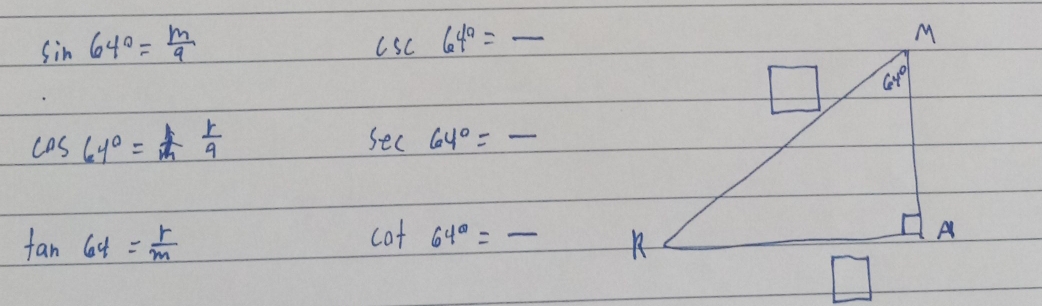 sin 64° = m/a
csc 64° = —
M
64°
cos 64° = r/a
sec 64° = —
tan 64 = r/m
cot 64° = —
R
A